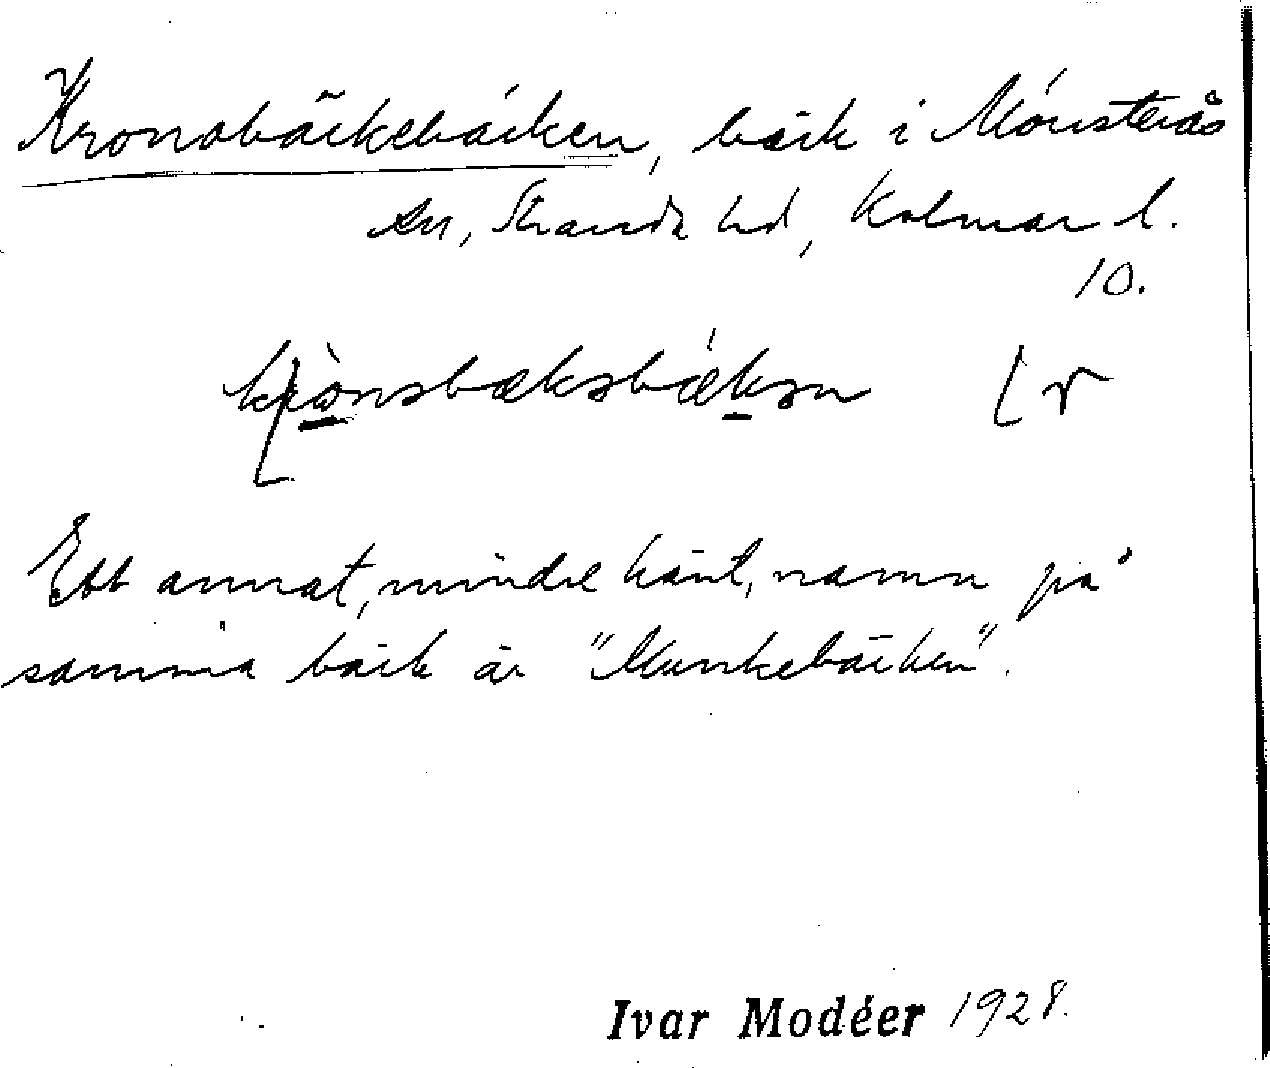 Kronobäckebäcken, bäck i Mönsterås
sn, Stranda hd, Kalmar l.
10.
Ett annat, mindre känt, namn på
samma bäck är "Munkebäcken".
Ivar Modéer 1928.